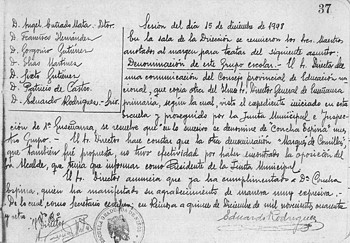 37
D. Angel Estrada Mata = Dtor.
D. Francisco Hernández
D. Gregorio Gutiérrez
D. Elías Martínez
D. Sixto Gutiérrez
D. Patricio de Castro
D. Eduardo Rodríguez = Srio.
Sesión del día 15 de diciembre de 1948
En la sala de la Dirección se reunieron los Sres. Maestros
anotados al margen para tratar del siguiente asunto:
Denominación de este Grupo escolar. - El Sr. Director da
una comunicación del Consejo provincial de Educación na-
cional, que copia otra del Ilmo. Sr. Director General de Enseñanza
primaria, según la cual, visto el expediente iniciado en esta
escuela y proseguido por la Junta Municipal e Inspec-
ción de 1ª Enseñanza, se resuelve que "en lo sucesivo se denomine de Concha Espina" este
Grupo. - El Sr. Director hace constar que la otra denominación "Marqués de Comillas",
que también fué propuesta, no tuvo efectividad por haber encontrado la oposición del
Sr. Alcalde, que tenía que informar como Presidente de la Junta Municipal.
El Sr. Director anuncia que ya ha cumplimentado a Dª Concha
Espina, quien ha manifestado su agradecimiento de manera muy expresiva. -
De lo cual como Secretario certifico; en Reinosa a quince de Diciembre de mil novecientos cuarenta
y ocho.
Eduardo Rodríguez